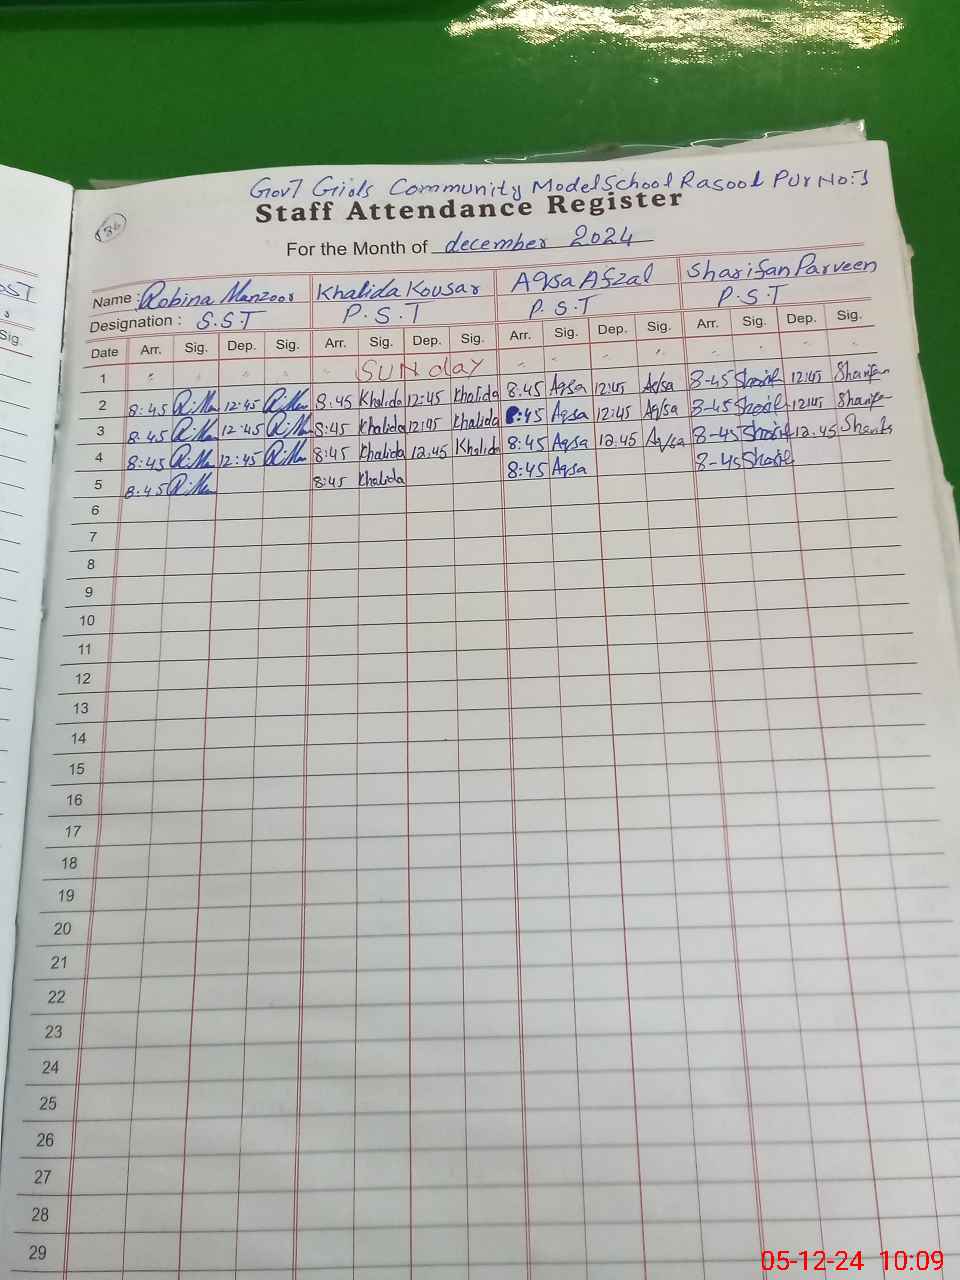 Gov7 Girls Community Model School Rasool Pur No:1
Staff Attendance Register
86
For the Month of december 2024
Name: Robina Manzoor Khalida Kousar Aqsa Afzal Sharifan Parveen
Designation: S.S.T P.S.T P.S.T P.S.T
Date Arr. Sig. Dep. Sig. Arr. Sig. Dep. Sig. Arr. Sig. Dep. Sig. Arr. Sig. Dep. Sig.
1 SUNday
2 8:45 12:45 8:45 Khalida 12:45 Khalida 8:45 Aqsa 12:45 Aqsa 8-45 Sharif 12:45 Sharifan
3 8:45 12:45 8:45 Khalida 12:45 Khalida 8:45 Aqsa 12:45 Aqsa 8-45 Sharif 12:45 Sharifan
4 8:45 12:45 8:45 Khalida 12:45 Khalida 8:45 Aqsa 12:45 Aqsa 8-45 Sharif 12:45
5 8:45 8:45 Khalida 8:45 Aqsa 8-45 Sharif
6
7
8
9
10
11
12
13
14
15
16
17
18
19
20
21
22
23
24
25
26
27
28
29
Sig.
05-12-24 10:09